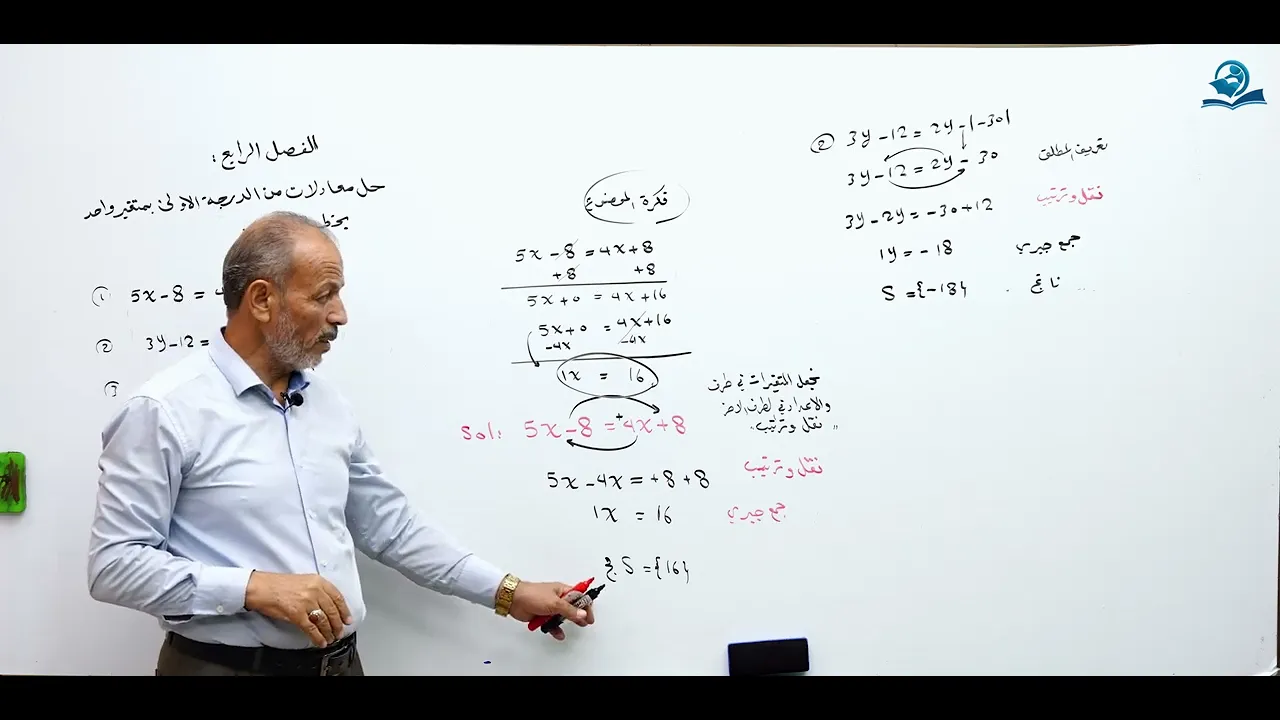 الفصل الرابع :
حل معادلات من الدرجة الاولى بمتغير واحد
① 5x-8 =
② 3y-12 =
③
فكرة الموضوع
5x - 8 = 4x + 8
+8 +8
5x + 0 = 4x + 16
5x + 0 = 4x + 16
-4x -4x
1x = 16
نجعل المتغيرات في طرف
والاعداد في الطرف الاخر
نقل وترتيب
Sol: 5x - 8 = +4x + 8
5x - 4x = +8 + 8 نقل وترتيب
1x = 16 جمع جبري
S = {16}
② 3y - 12 = 2y - |-30|
3y - 12 = 2y - 30 تعريف المطلق
3y - 2y = -30 + 12 نقل وترتيب
1y = -18 جمع جبري
S = {-18} ناتج